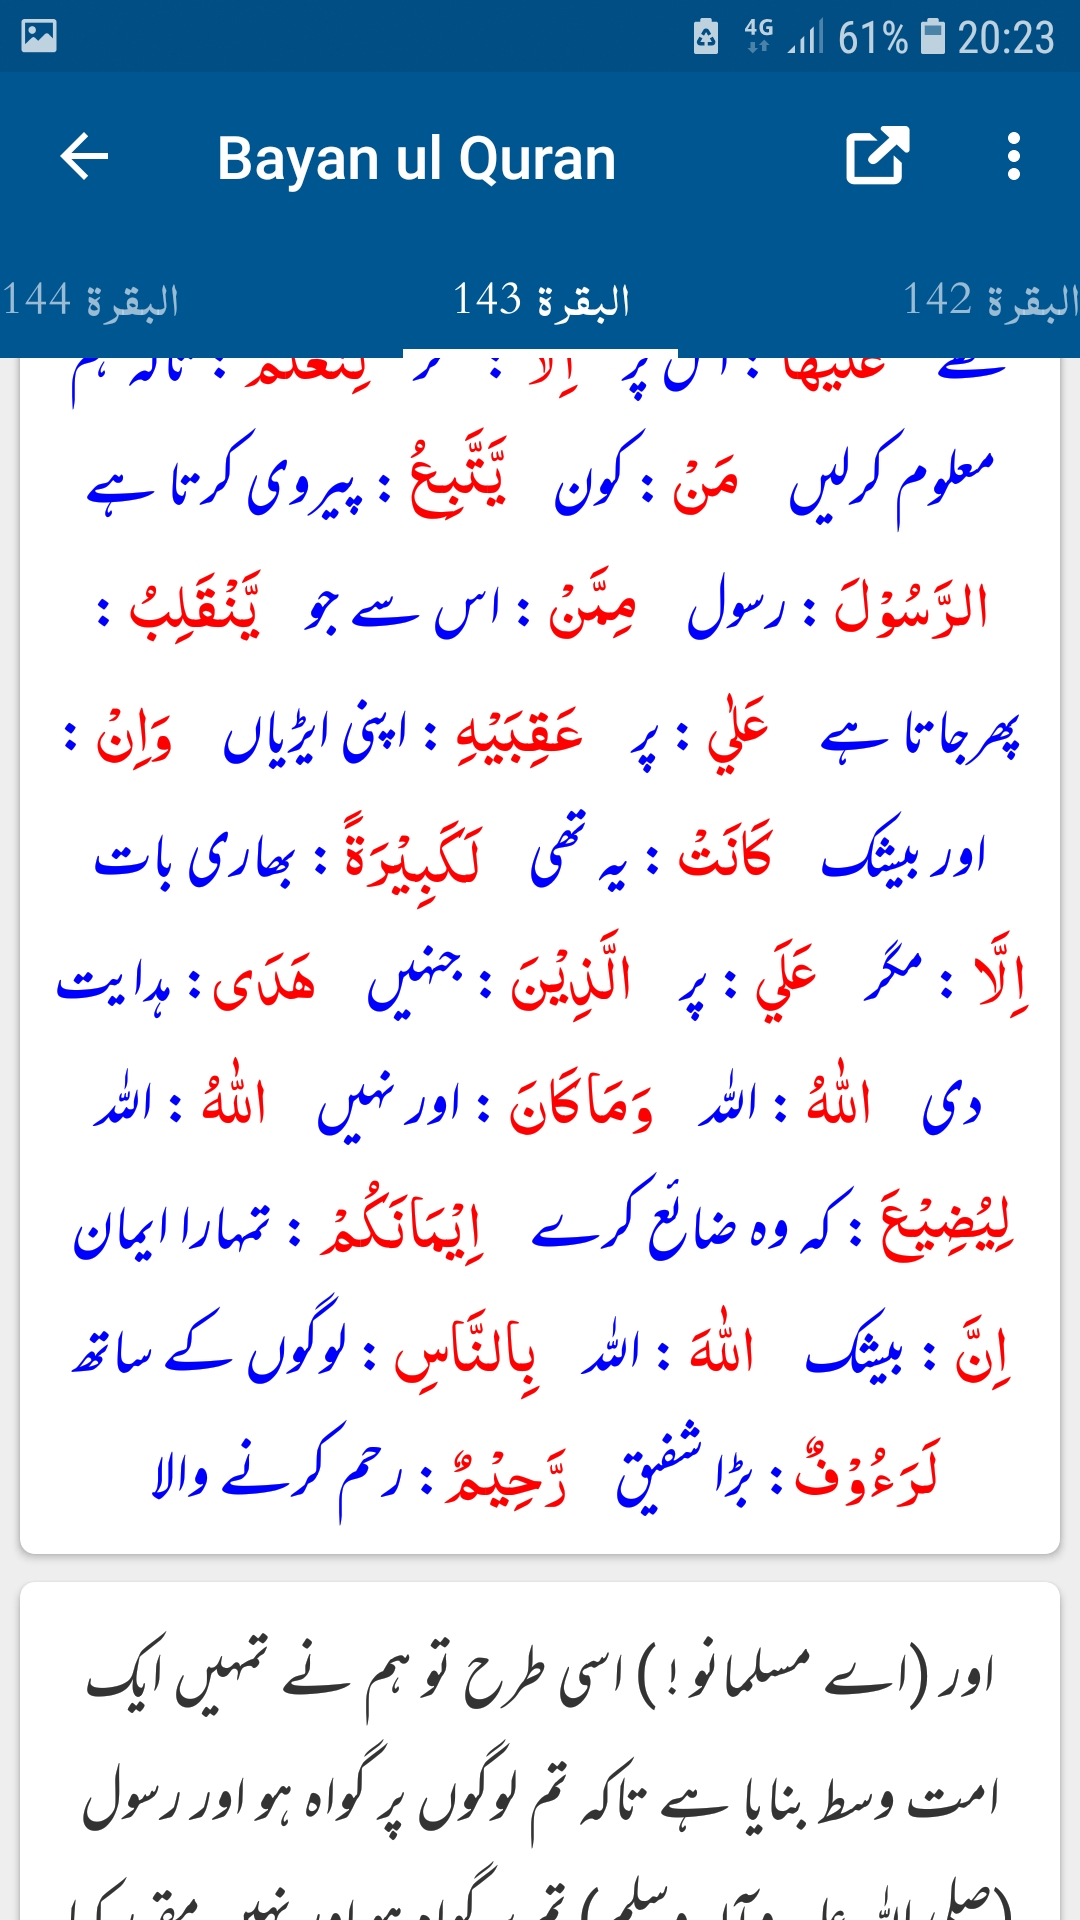 4G 61% 20:23
Bayan ul Quran
البقرة 142 البقرة 143 البقرة 144
سے عَلَيْهَا : اس پر اِلَّا : مگر لِنَعْلَمَ : تاکہ ہم
معلوم کرلیں مَنْ : کون يَّتَّبِعُ : پیروی کرتا ہے
الرَّسُوْلَ : رسول مِمَّنْ : اس سے جو يَّنْقَلِبُ :
پھرجاتا ہے عَلٰي : پر عَقِبَيْهِ : اپنی ایڑیاں وَاِنْ :
اور بیشک كَانَتْ : یہ تھی لَكَبِيْرَةً : بھاری بات
اِلَّا : مگر عَلَي : پر الَّذِيْنَ : جنہیں ھَدَى : ہدایت
دی اللّٰهُ : اللہ وَمَا كَانَ : اور نہیں اللّٰهُ : اللہ
لِيُضِيْعَ : کہ وہ ضائع کرے اِيْمَانَكُمْ : تمہارا ایمان
اِنَّ : بیشک اللّٰهَ : اللہ بِالنَّاسِ : لوگوں کے ساتھ
لَرَءُوْفٌ : بڑا شفیق رَّحِيْمٌ : رحم کرنے والا
اور (اے مسلمانو !) اسی طرح تو ہم نے تمہیں ایک
امت وسط بنایا ہے تاکہ تم لوگوں پر گواہ ہو اور رسول